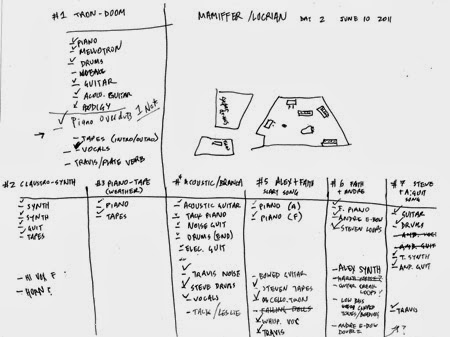 #1 TRON-DOOM
MAMIFFER/LOCRIAN DAY 2 JUNE 10 2011
PIANO
MELLOTRON
DRUMS
GUITAR
ACOU. GUITAR
PRODIGY
PIANO OVERDUB 1 NOTE
TAPES (INTRO/OUTRO)
VOCALS
TRAVIS/PLATE VERB
#2 CLAUSTRO-SYNTH
SYNTH
SYNTH
GUIT
TAPES
HI VOX F
HORN?
#3 PIANO-TAPE
(WEATHER)
PIANO
TAPES
#4 ACOUSTIC/BRANCA
ACOUSTIC GUITAR
TACK PIANO
NOISE GUIT
DRUMS (END)
ELEC. GUIT
TRAVIS NOISE
STEVE DRUMS
VOCALS
TALK/LESLIE
#5 ALEX+FAITH
SCARY SONG
PIANO (A)
PIANO (F)
BOWED GUITAR
STEVEN TAPES
OSCILLOTRON
WHISP. VOX
TRAVIS
#6 FAITH
+ ANDRE
F. PIANO
ANDRE E-BOW
STEVEN LOOPS
ALEX SYNTH
LOOPS?
LOW BASS
ANDRE E-BOW
DOUBLE
#7 STEVE
SONG
GUITAR
DRUMS
T. SYNTH
AMP. GUIT
TRAVIS